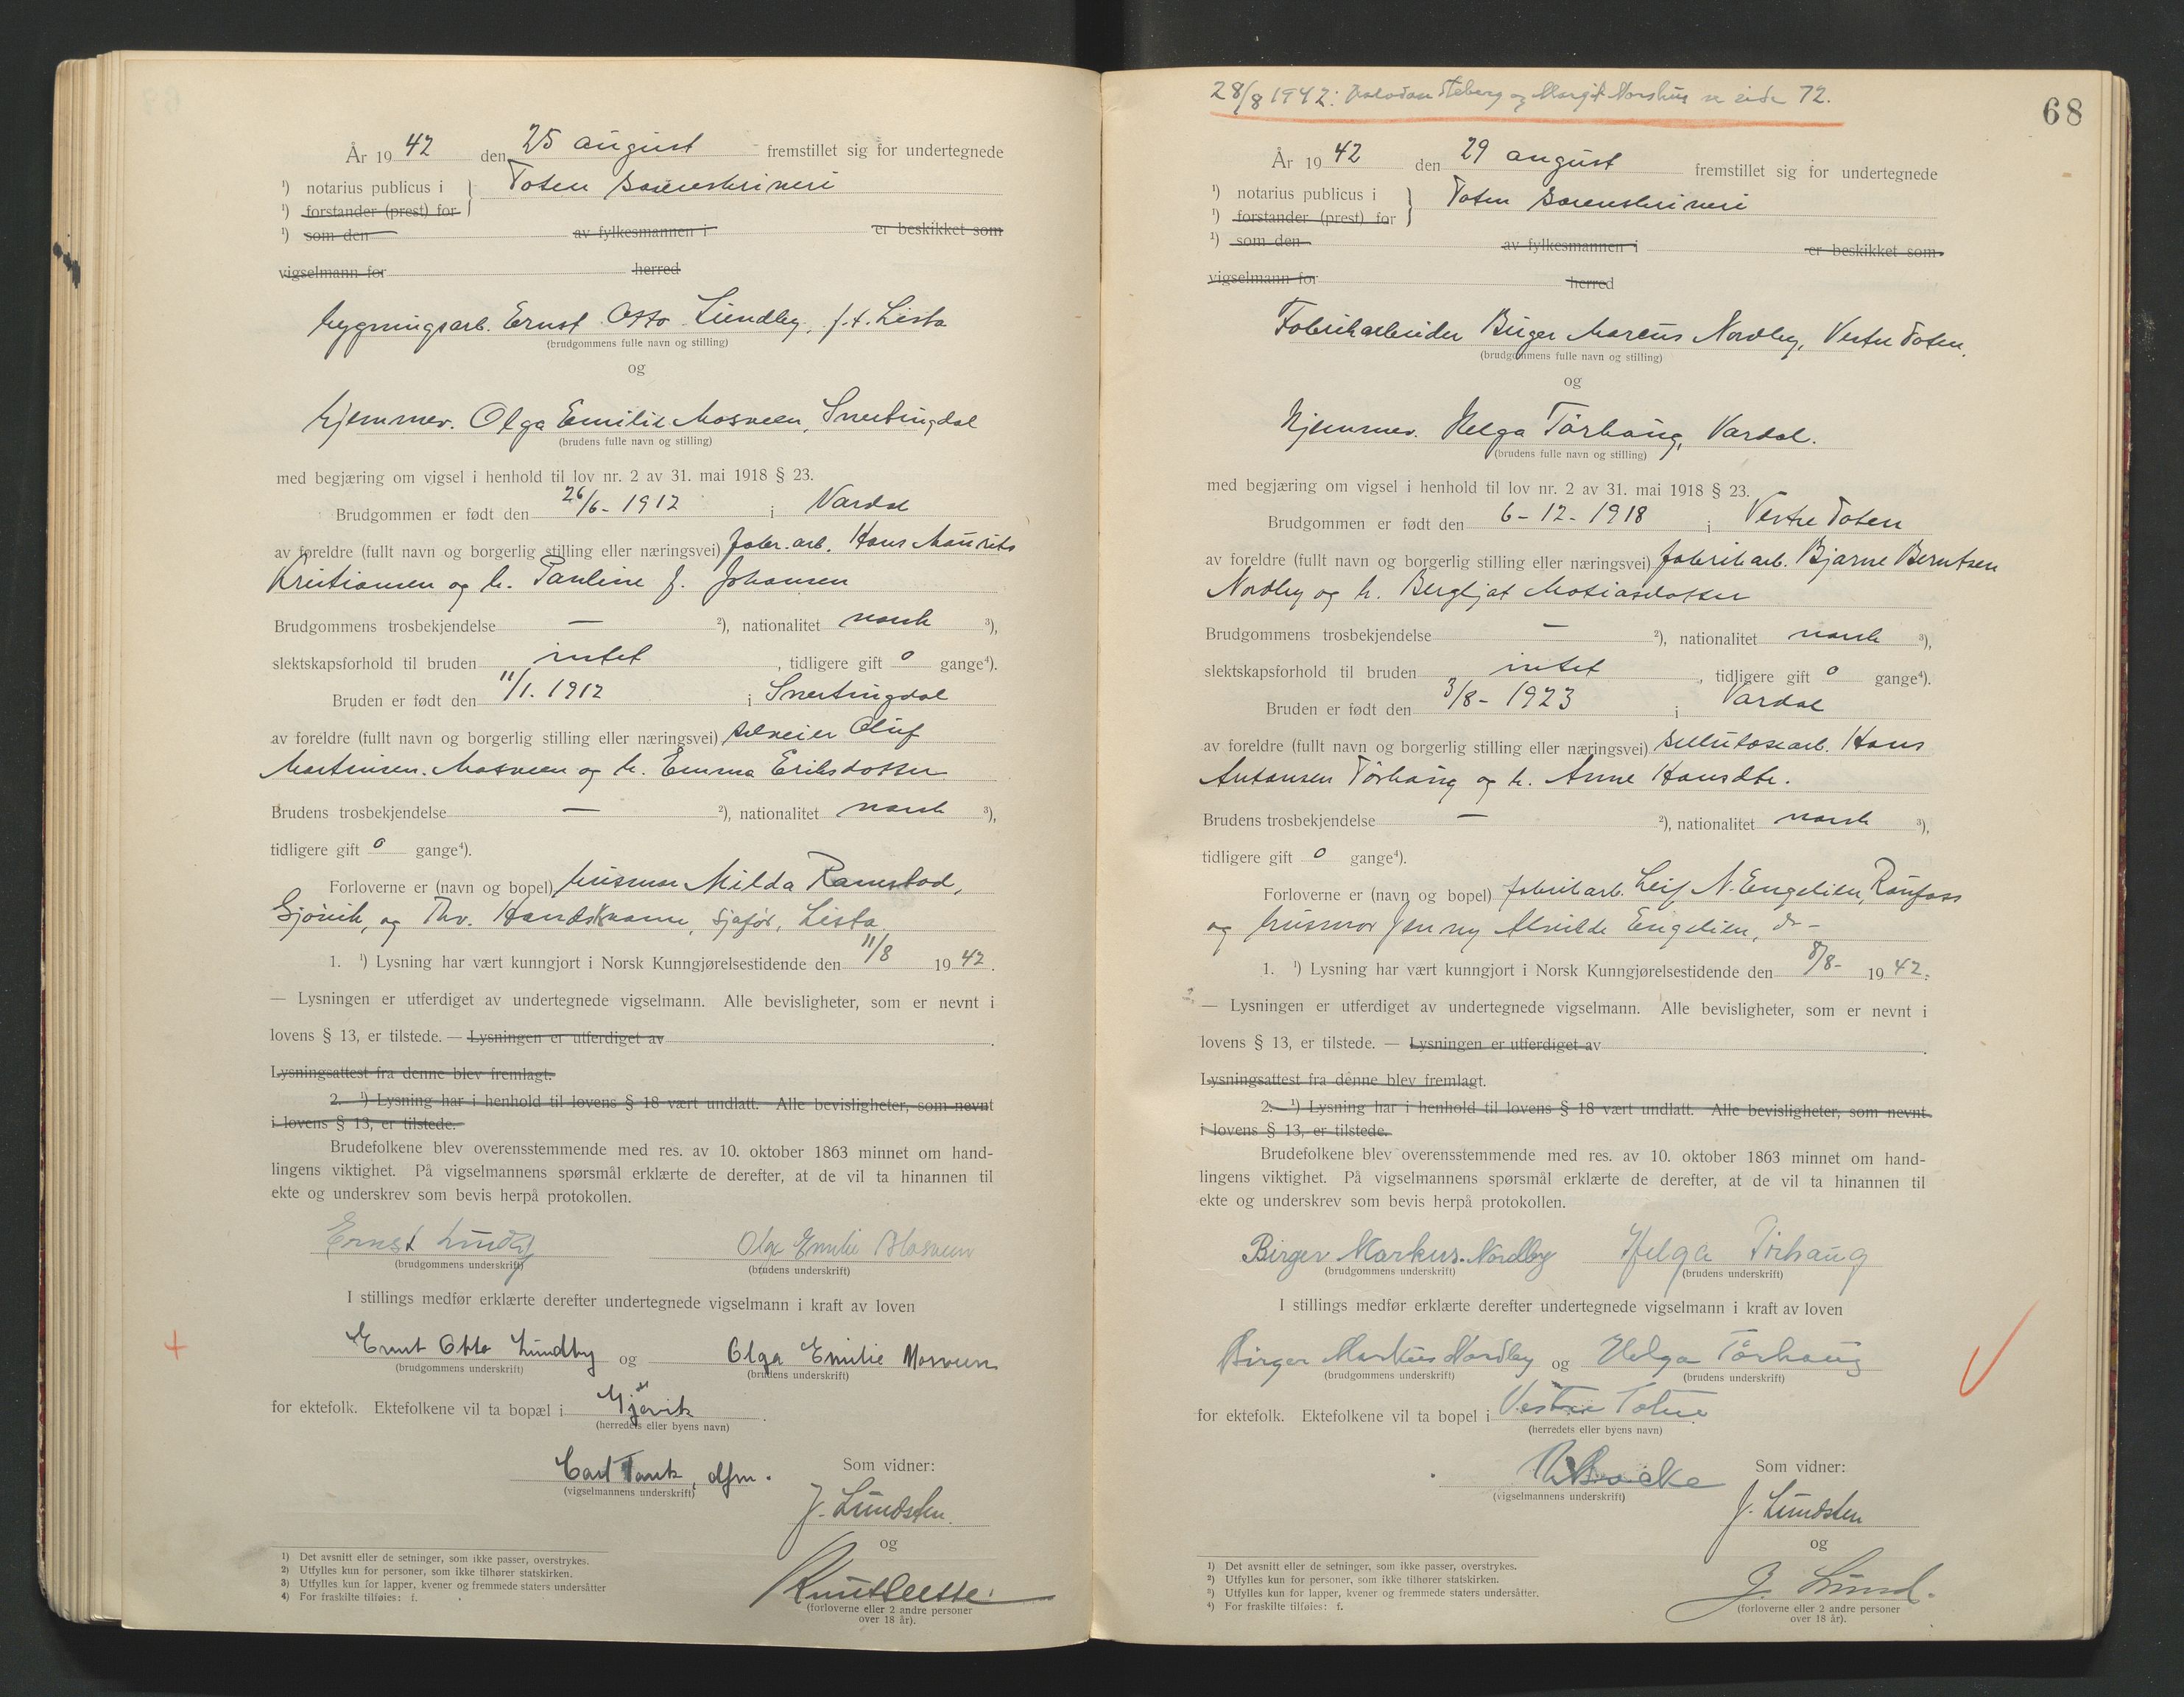 År 1942 den 25 august fremstillet sig for undertegnede
¹) notarius publicus i } Toten sorenskriveri
¹) forstander (prest) for
¹) som den av fylkesmannen i er beskikket som
vigselmann for herred
bygningsarb. Ernst Otto Lundby, f.t. Lista
(brudgommens fulle navn og stilling)
og
hjemmev. Olga Emilie Mosveen, Snertingdal
(brudens fulle navn og stilling)
med begjæring om vigsel i henhold til lov nr. 2 av 31. mai 1918 § 23.
Brudgommen er født den 26/6- 1912 i Vardal
av foreldre (fullt navn og borgerlig stilling eller næringsvei) fabr. arb. Hans Maurits
Kristiansen og h. Pauline f. Johansen
Brudgommens trosbekjendelse — ²), nationalitet norsk ³),
slektskapsforhold til bruden intet, tidligere gift 0 gange⁴).
Bruden er født den 11/1. 1912 i Snertingdal
av foreldre (fullt navn og borgerlig stilling eller næringsvei) selveier Oluf
Martinsen Mosveen og h. Emma Eriksdotter
Brudens trosbekjendelse — ²), nationalitet norsk ³),
tidligere gift 0 gange⁴).
Forloverne er (navn og bopel) husmor Milda Ramstad,
Gjövik, og Thv. Handskram, sjafør, Lista
1. ¹) Lysning har vært kunngjort i Norsk Kunngjørelsestidende den 11/8 1942.
— Lysningen er utferdiget av undertegnede vigselmann. Alle bevisligheter, som er nevnt i
lovens § 13, er tilstede. — Lysningen er utferdiget av
Lysningsattest fra denne blev fremlagt.
2. ¹) Lysning har i henhold til lovens § 18 vært undlatt. Alle bevisligheter, som nevnt
i lovens § 13, er tilstede.
Brudefolkene blev overensstemmende med res. av 10. oktober 1863 minnet om hand-
lingens viktighet. På vigselmannens spørsmål erklærte de derefter, at de vil ta hinannen til
ekte og underskrev som bevis herpå protokollen.
Ernst Lundby Olga Emilie Mosveen
(brudgommens underskrift) (brudens underskrift)
I stillings medfør erklærte derefter undertegnede vigselmann i kraft av loven
Ernst Otto Lundby og Olga Emilie Mosveen
(brudgommens underskrift) (brudens underskrift)
for ektefolk. Ektefolkene vil ta bopæl i Gjøvik
(herredets eller byens navn)
Carl Tank, dfm.
(vigselmannens underskrift)
Som vidner:
J. Lundsten.
og
(forloverne eller 2 andre personer
over 18 år).
¹) Det avsnitt eller de setninger, som ikke passer, overstrykes.
²) Utfylles kun for personer, som ikke tilhører statskirken.
³) Utfylles kun for lapper, kvener og fremmede staters undersåtter
⁴) For fraskilte tilføies: f.
28/8 1942: Steberg og Margit Norshus se side 72.
68
År 1942 den 29 august fremstillet sig for undertegnede
¹) notarius publicus i } Toten sorenskriveri
¹) forstander (prest) for
¹) som den av fylkesmannen i er beskikket som
vigselmann for herred
Fabrikarbeider Birger Marcus Nordby, Vestre Toten.
(brudgommens fulle navn og stilling)
og
Hjemmev. Helga Tørhaug, Vardal.
(brudens fulle navn og stilling)
med begjæring om vigsel i henhold til lov nr. 2 av 31. mai 1918 § 23.
Brudgommen er født den 6-12-1918 i Vestre Toten
av foreldre (fullt navn og borgerlig stilling eller næringsvei) fabrikarb. Bjarne Berntsen
Nordby og h. Bergljot Matiasdotter
Brudgommens trosbekjendelse — ²), nationalitet norsk ³),
slektskapsforhold til bruden intet, tidligere gift 0 gange⁴).
Bruden er født den 3/8- 1923 i Vardal
av foreldre (fullt navn og borgerlig stilling eller næringsvei) sellulosearb. Hans
Antonsen Tørhaug og h. Anne Hansdtr.
Brudens trosbekjendelse — ²), nationalitet norsk ³),
tidligere gift 0 gange⁴).
Forloverne er (navn og bopel) fabrikarb. Leif N. Engelien, Raufoss
og husmor Jenny Alvilde Engelien, do-
1. ¹) Lysning har vært kunngjort i Norsk Kunngjørelsestidende den 8/8- 1942.
— Lysningen er utferdiget av undertegnede vigselmann. Alle bevisligheter, som er nevnt i
lovens § 13, er tilstede. — Lysningen er utferdiget av
Lysningsattest fra denne blev fremlagt.
2. ¹) Lysning har i henhold til lovens § 18 vært undlatt. Alle bevisligheter, som nevnt
i lovens § 13, er tilstede.
Brudefolkene blev overensstemmende med res. av 10. oktober 1863 minnet om hand-
lingens viktighet. På vigselmannens spørsmål erklærte de derefter, at de vil ta hinannen til
ekte og underskrev som bevis herpå protokollen.
Birger Markus Nordby Helga Tørhaug
(brudgommens underskrift) (brudens underskrift)
I stillings medfør erklærte derefter undertegnede vigselmann i kraft av loven
Birger Markus Nordby og Helga Tørhaug
(brudgommens underskrift) (brudens underskrift)
for ektefolk. Ektefolkene vil ta bopel i Vestre Toten
(herredets eller byens navn)
(vigselmannens underskrift)
Som vidner:
J. Lundsten
og
J. Lund.
(forloverne eller 2 andre personer
over 18 år).
¹) Det avsnitt eller de setninger, som ikke passer, overstrykes.
²) Utfylles kun for personer, som ikke tilhører statskirken.
³) Utfylles kun for lapper, kvener og fremmede staters undersåtter.
⁴) For fraskilte tilføies: f.